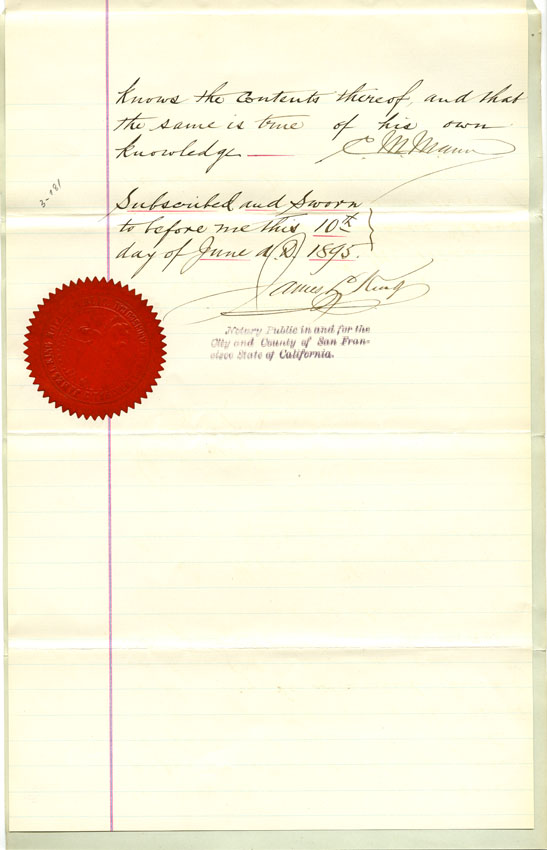 knows the contents thereof, and that
the same is true of his own
knowledge. — C. M. Mann
3-181
Subscribed and Sworn
to before me this 10th
day of June A.D. 1895.
James L. King
Notary Public in and for the
City and County of San Fran-
cisco State of California.